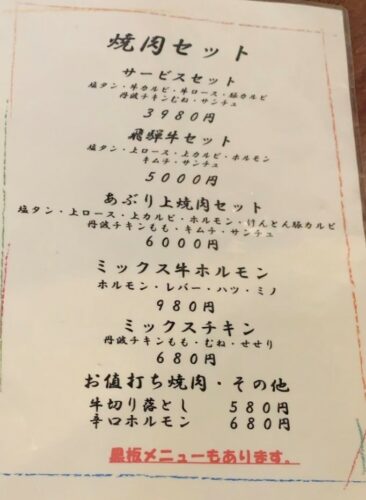 焼肉セット
サービスセット
塩タン・牛カルビ・牛ロース・豚カルビ
丹波チキンむね・サンチュ
3980円
飛騨牛セット
塩タン・上ロース・上カルビ・ホルモン
キムチ・サンチュ
5000円
あぶり上焼肉セット
塩タン・上ロース・上カルビ・ホルモン・けんとん豚カルビ
丹波チキンもも・キムチ・サンチュ
6000円
ミックス牛ホルモン
ホルモン・レバー・ハツ・ミノ
980円
ミックスチキン
丹波チキンもも・むね・せせり
680円
お値打ち焼肉・その他
牛切り落とし 580円
辛口ホルモン 680円
黒板メニューもあります。